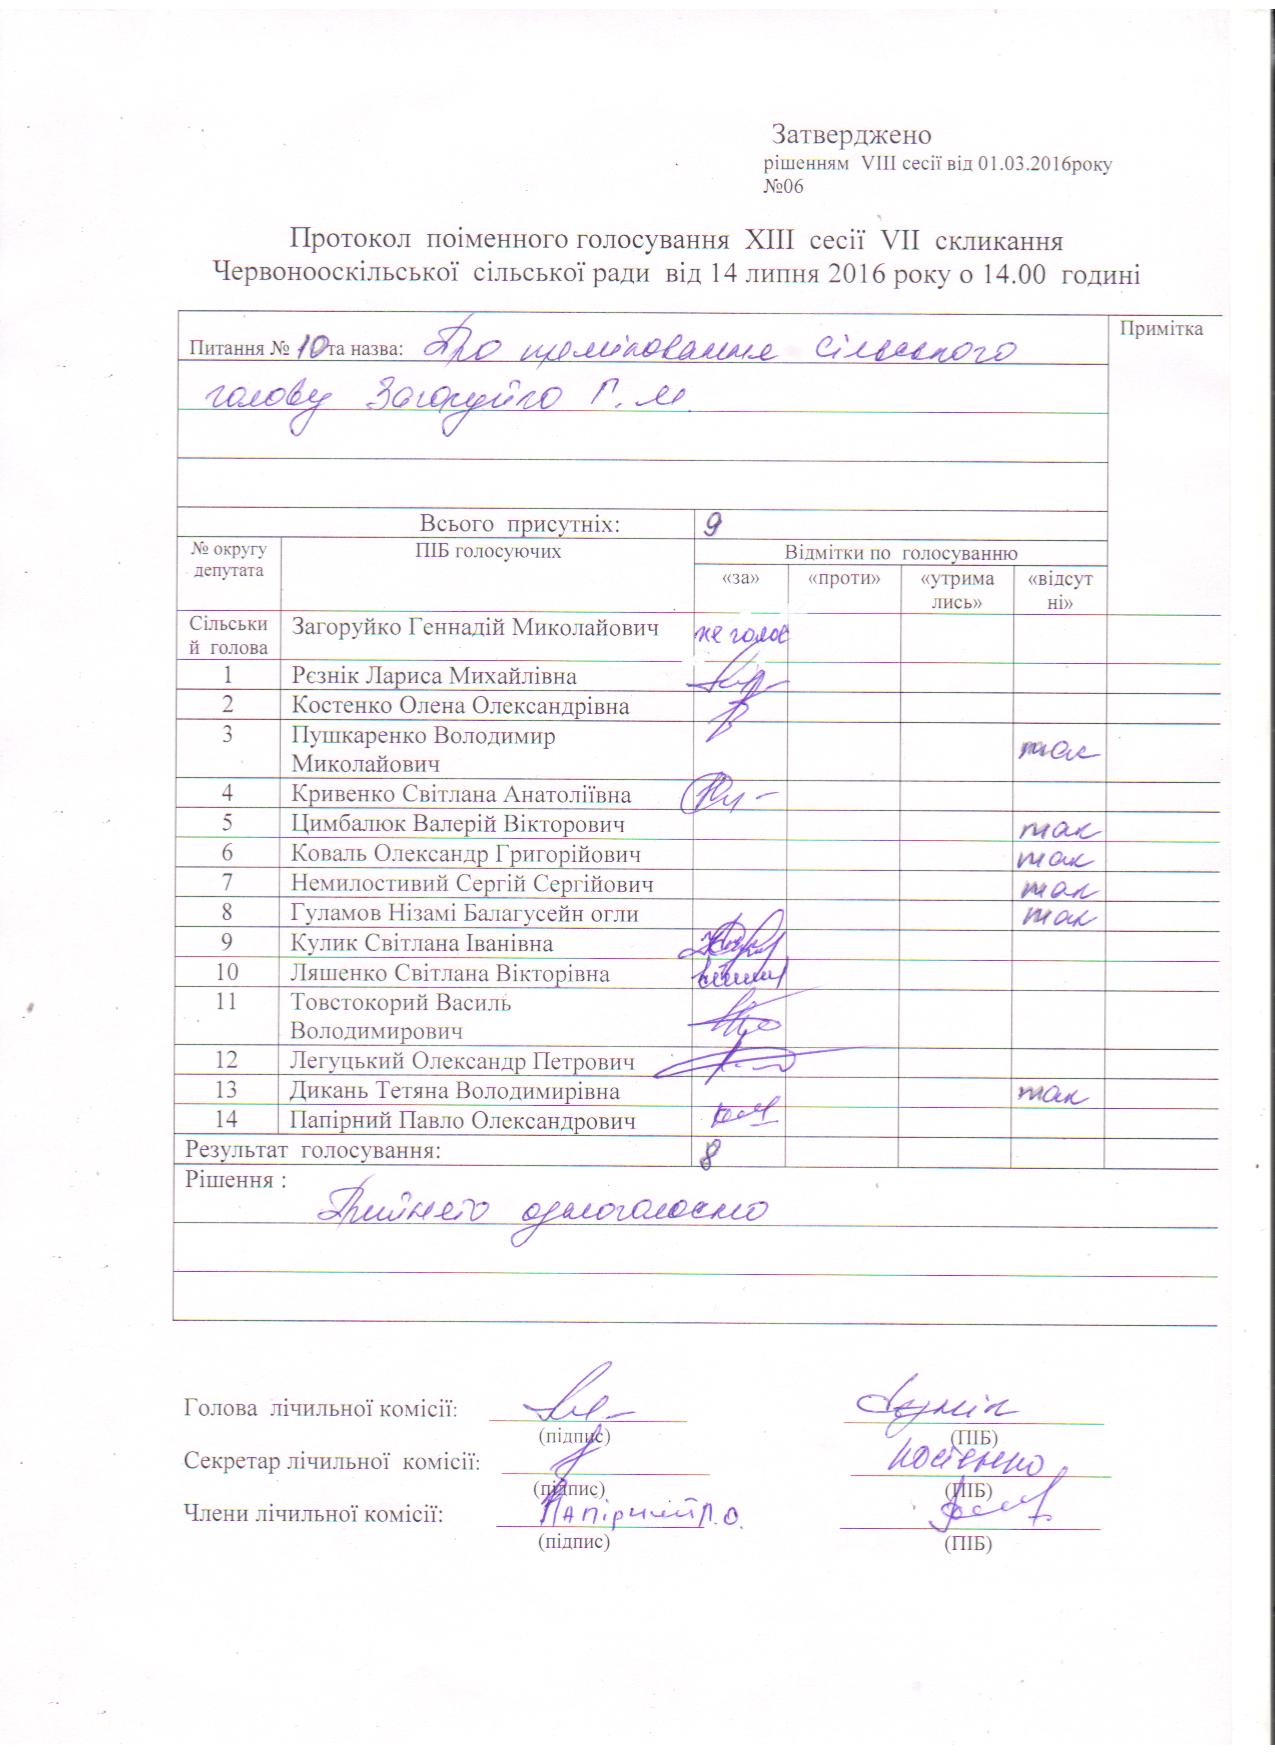 Затверджено
рішенням VIII сесії від 01.03.2016року
№06
Протокол поіменного голосування XIII сесії VII скликання
Червонооскільської сільської ради від 14 липня 2016 року о 14.00 годині
Питання № 10 та назва: Про преміювання сільського
Примітка
голову Загоруйко Г. М.
Всього присутніх: 9
№ округу депутата
ПІБ голосуючих
Відмітки по голосуванню
«за» «проти» «утрима лись» «відсут ні»
Сільськи й голова Загоруйко Геннадій Миколайович не голос
1 Рєзнік Лариса Михайлівна
2 Костенко Олена Олександрівна
3 Пушкаренко Володимир
Миколайович так
4 Кривенко Світлана Анатоліївна
5 Цимбалюк Валерій Вікторович так
6 Коваль Олександр Григорійович так
7 Немилостивий Сергій Сергійович так
8 Гуламов Нізамі Балагусейн огли так
9 Кулик Світлана Іванівна
10 Ляшенко Світлана Вікторівна
11 Товстокорий Василь
Володимирович
12 Легуцький Олександр Петрович
13 Дикань Тетяна Володимирівна так
14 Папірний Павло Олександрович
Результат голосування: 8
Рішення :
Прийнято одноголосно
Голова лічильної комісії:
(підпис) (ПІБ)
Секретар лічильної комісії: Костенко
(підпис) (ПІБ)
Члени лічильної комісії: Папірний П.О.
(підпис) (ПІБ)